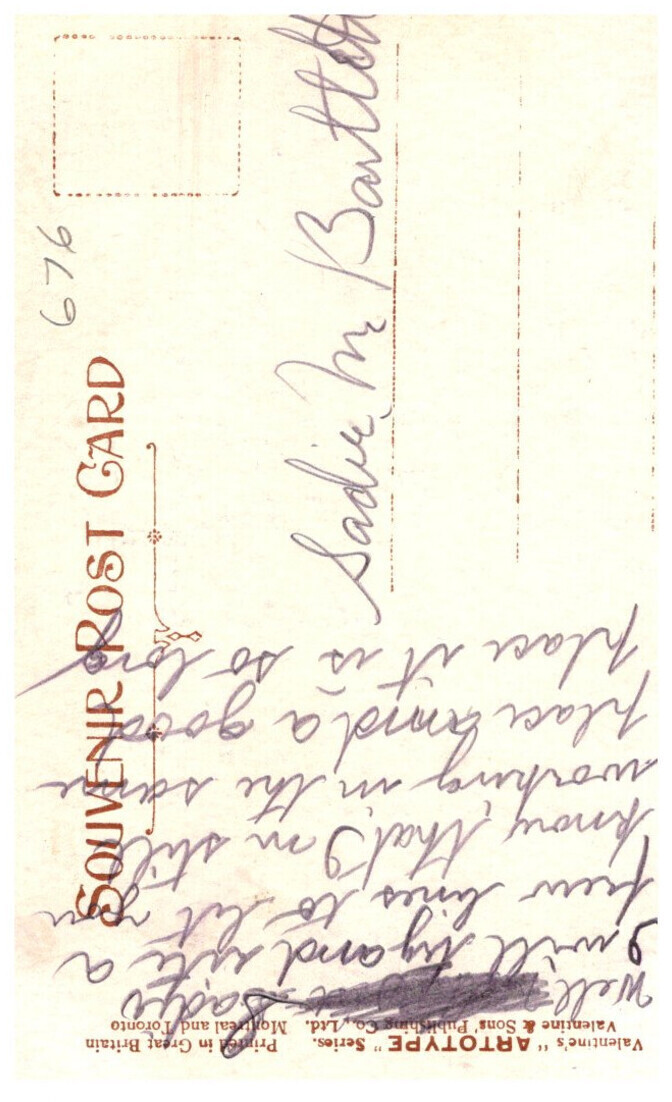 SOUVENIR POST CARD
676
Sadie M Bartlett
Valentine's "ARTOTYPE" Series. Printed in Great Britain
Valentine & Sons' Publishing Co., Ltd. Montreal and Toronto
Well Sadie
I will try and rite a
few lines to let you
know, that I m still
working in the same
place and a good
place it is so long